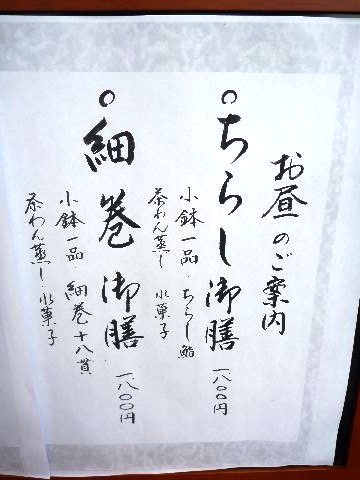 お昼のご案内
○ちらし御膳 一八〇〇円
小鉢一品・ちらし鮨
茶わん蒸し 水菓子
○細巻御膳 一八〇〇円
小鉢一品・細巻十八貫
茶わん蒸し・水菓子